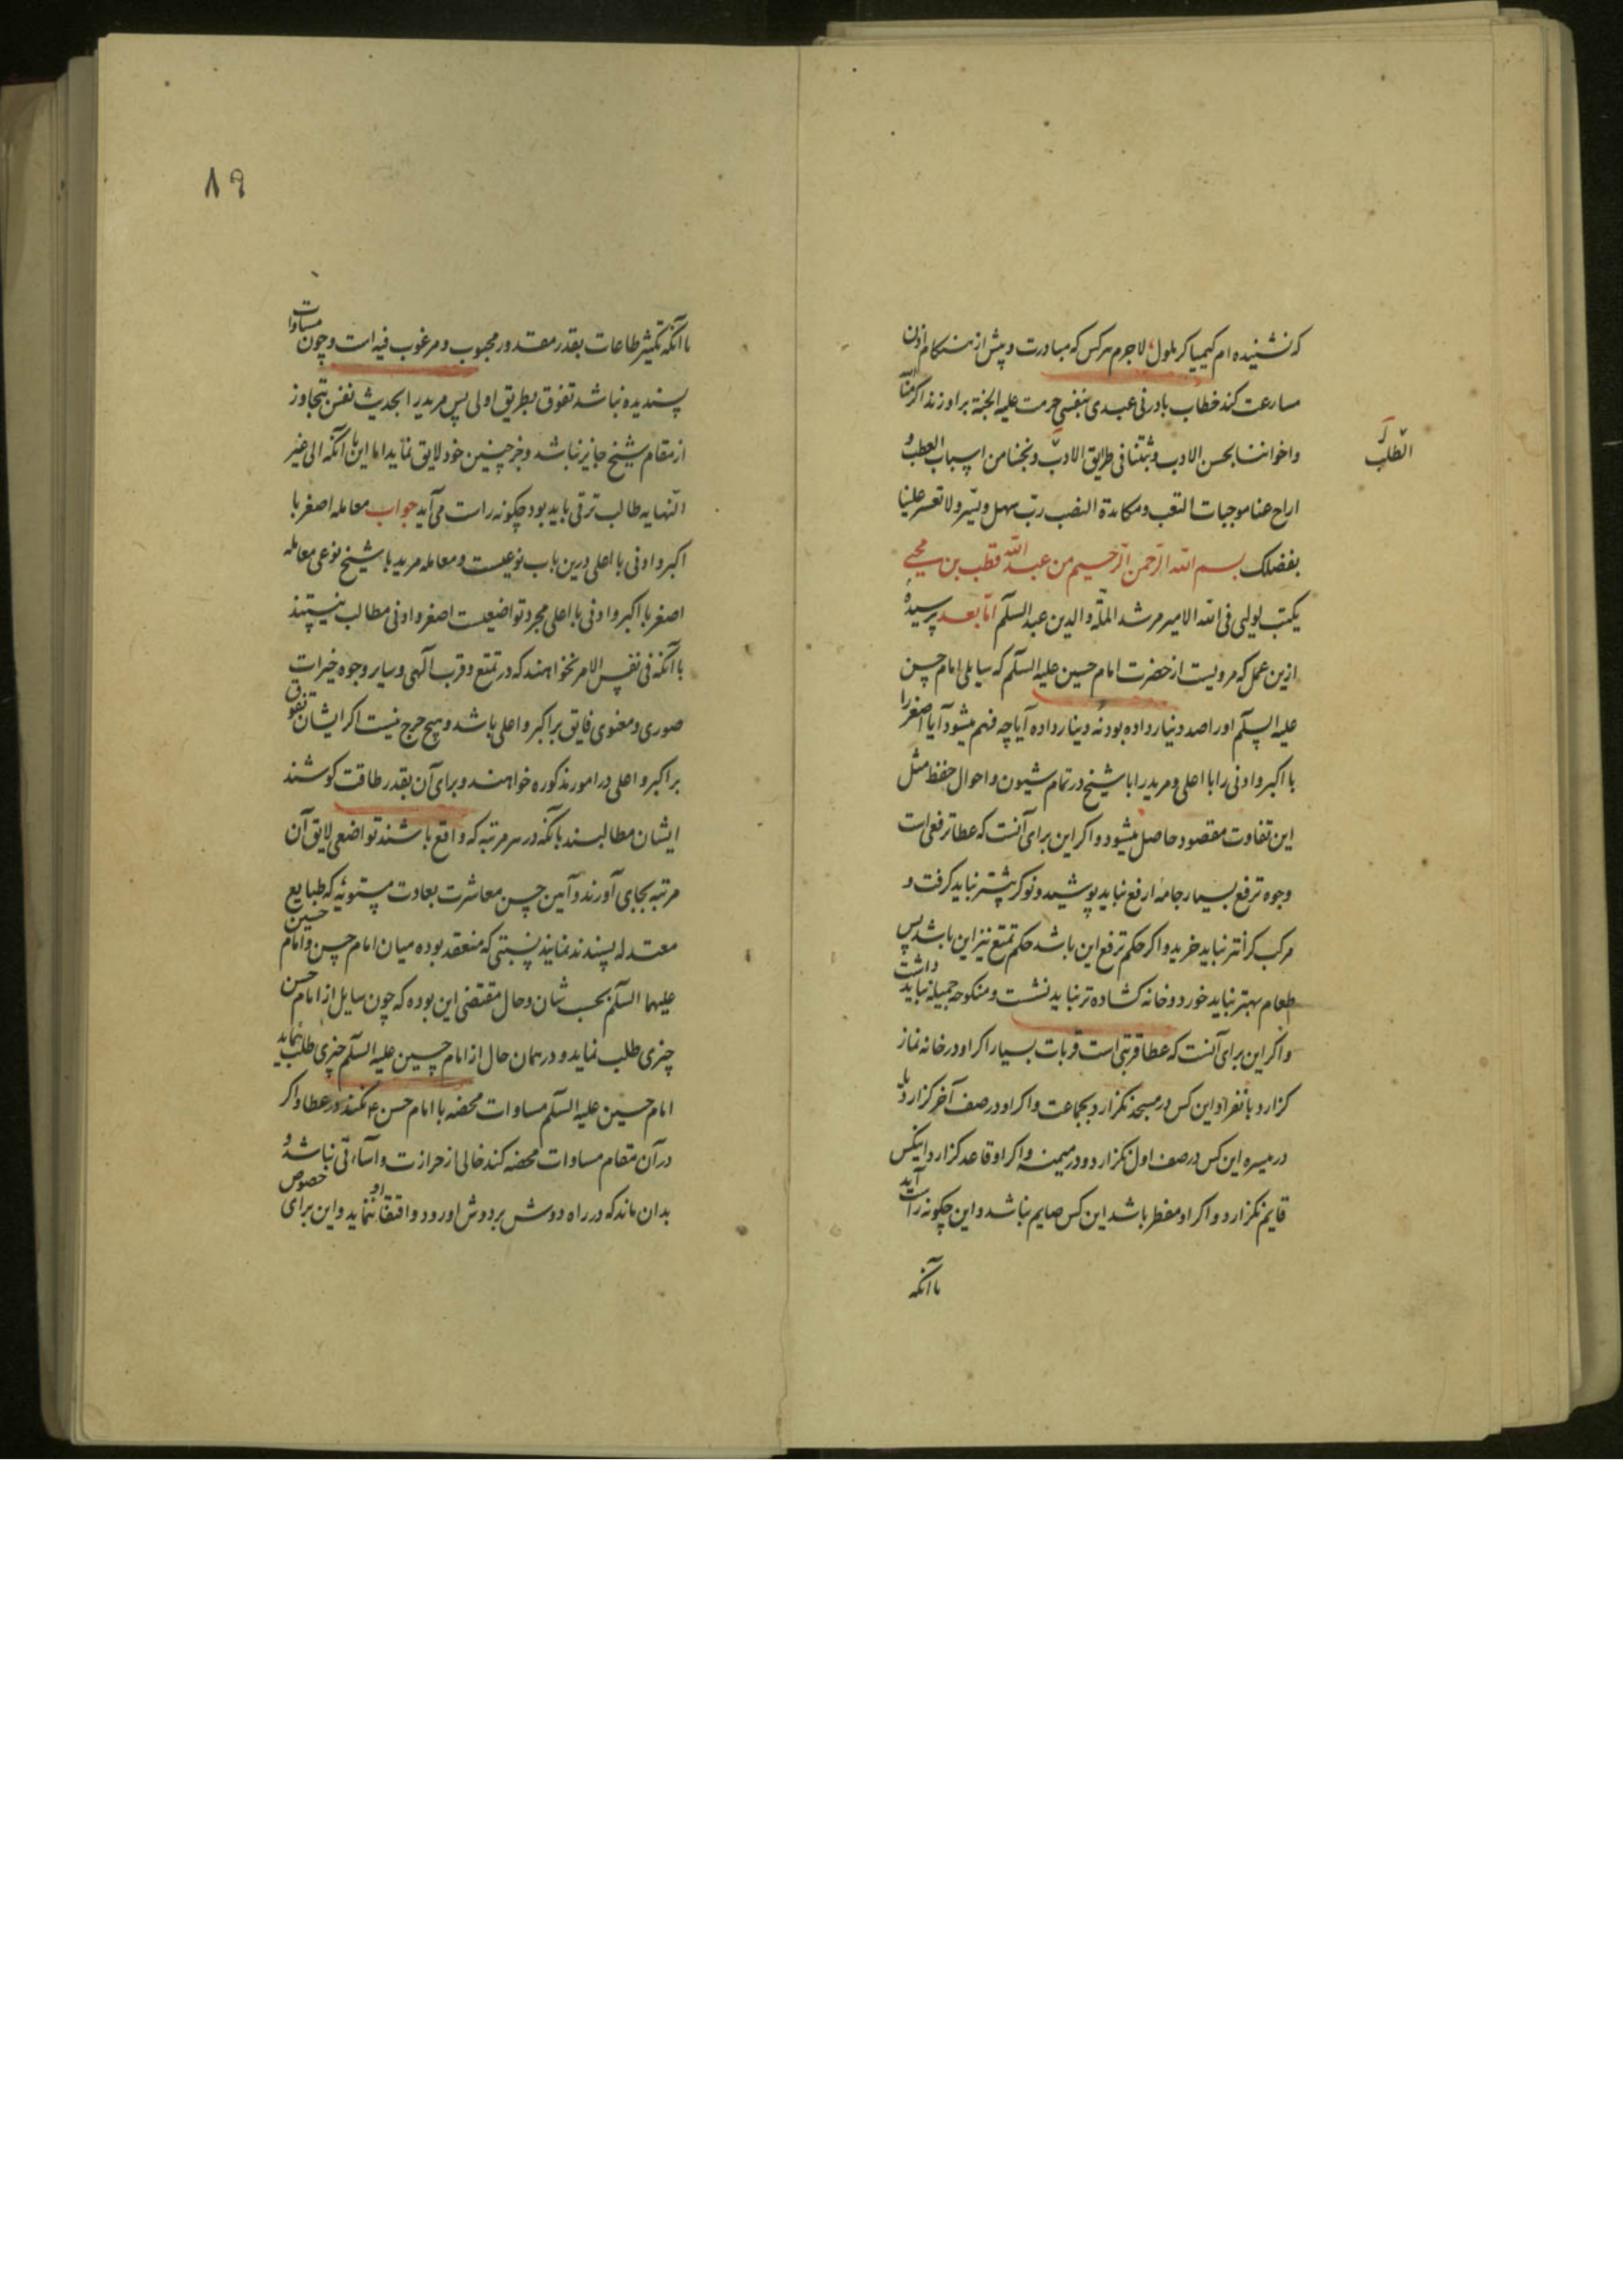 که نشنیده‌ام کیمیاگر ملول، لاجرم هرکس که مبادرت و پیش از هنکام اذن
مسارعت کند خطاب بادرنی عبدی بنفسی حرمت علیه الجنة بر او زند اکرمنا
واخواننا بحسن الادب وثبتنا فی طرایق الادب ونجنا من اسباب العطب و
اراح عنا موجبات التعب ومکابدة النصب رب سهل ویسر ولا تعسر علینا
بفضلک بسم الله الرحمن الرحیم من عبد الله قطب بن محیی
یکتب لولیی فی الله الامیر مرشد الملة والدین عبد السلام اما بعد پرسیدهٔ
ازین عمل که مرویست از حضرت امام حسین علیه السلام که سایلی امام حسن
علیه السلام او را صد دینار داده بود نه دینار داده آیا چه فهم میشود آیا اصغر را
با اکبر و ادنی را با اعلی و مرید را با شیخ در تمام شیون و احوال حفظ مثل
این تفاوت مقصود حاصل میشود و اکر این برای آنست که عطا ترفعی است
وجوه ترفع بسیار جامه ارفع نباید پوشید و نوکر بیشتر نباید کرفت و
مرکب کرانتر نباید خرید و اکر حکم ترفع این باشد حکم تمتع نیز این باشد پس
طعام بهتر نباید خورد و خانه کشاده‌تر نباید نشست و منکوحه جمیله نباید داشت
و اکر این برای آنست که عطا قربتی است قربات بسیار اکر او در خانه نماز
کزارد بانفراد این کس در مسجد نکزارد بجماعت و اکر او در صف آخر کزارد یا
در میسره این کس در صف اول نکزارد و در میمنه و اکر او قاعد کزارد اینکس
قایم نکزارد و اکر او مفطر باشد این کس صایم نباشد و این چکونه راست آید
با آنکه
الطلب
۸۹
با آنکه تکثیر طاعات بقدر مقدور محبوب و مرغوب فیه است و چون مساوات
پسندیده نباشد تفوق بطریق اولی پس مرید را بحدیث نفس تجاوز
از مقام شیخ جایز نباشد و جز چنین خود لایق نماید اما این با آنکه الی غیر
النهایه طالب ترقی باید بود چکونه راست می‌آید جواب معامله اصغر با
اکبر و ادنی با اعلی درین باب نوعیست و معامله مرید با شیخ نوعی معامله
اصغر با اکبر و ادنی با اعلی مجرد تواضعیست اصغر و ادنی مطالب نیستند
با آنکه فی نفس الامر نخواهند که در تمتع و قرب آلهی و سایر وجوه خیرات
صوری و معنوی فایق بر اکبر و اعلی باشد و هیچ حرج نیست اکر ایشان تفوق
بر اکبر و اعلی در امور مذکوره خواهند و برای آن بقدر طاقت کوشند
ایشان مطالبند بآنکه در هر مرتبه که واقع باشند تواضعی لایق آن
مرتبه بجای آورند و آیین حسن معاشرت بعادت مستویه که طبایع
معتدله پسندند نمایند نسبتی که منعقد بوده میان امام حسن و امام حسین
علیهما السلام بحسب شان و حال مقتضی این بوده که چون سایل از امام حسن
چیزی طلب نماید و در همان حال از امام حسین علیه السلام چیزی طلب نماید
امام حسین علیه السلام مساوات محضه با امام حسن ع نکند در عطا و اکر
در آن مقام مساوات محضه کند خالی از حرازت و اساءتی نباشد و
بدان ماند که در راه دوش بر دوش او رود و اقتفا او ننماید و این برای خصوص